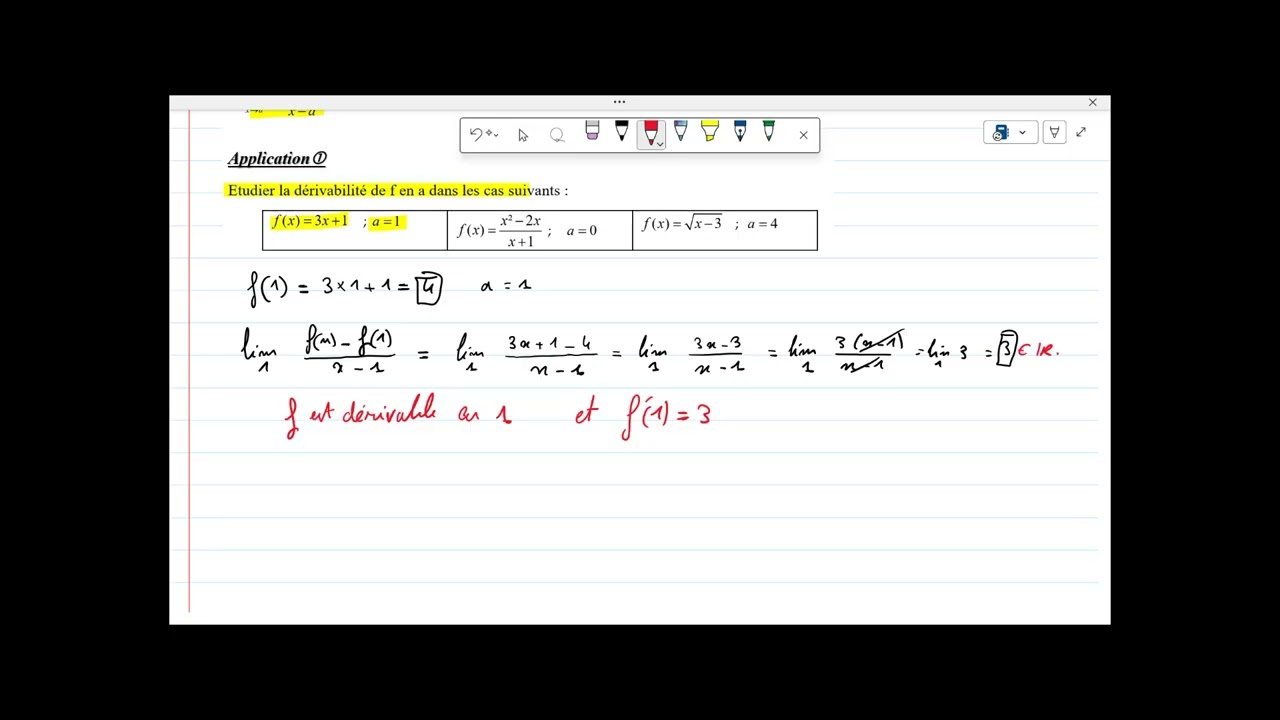 x – a
Application①
Etudier la dérivabilité de f en a dans les cas suivants :
f(x) = 3x+1 ; a = 1
f(x) = (x² – 2x)/(x+1) ; a = 0
f(x) = √(x–3) ; a = 4
f(1) = 3×1+1 = 4 a = 1
lim 1 (f(x) – f(1))/(x – 1) = lim 1 (3x+1–4)/(x–1) = lim 1 (3x–3)/(x–1) = lim 1 3(x–1)/(x–1) = lim 1 3 = 3 ∈ IR.
f est dérivable en 1 et f'(1) = 3